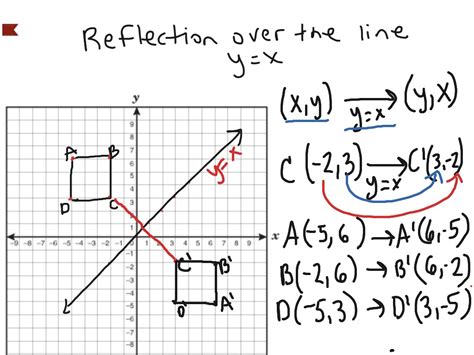 Reflection over the line
y=x
(x,y) → (y,x)
y=x
C(-2,3) → C'(3,-2)
y=x
A(-5,6) → A'(6,-5)
B(-2,6) → B'(6,-2)
D(-5,3) → D'(3,-5)
y
8
7
6
5
4
3
2
1
-9 -8 -7 -6 -5 -4 -3 -2 -1 1 2 3 4 5 6 7 8 9 x
-1
-2
-3
-4
-5
-6
-7
-8
A B
D C
y=x
C' B'
D' A'